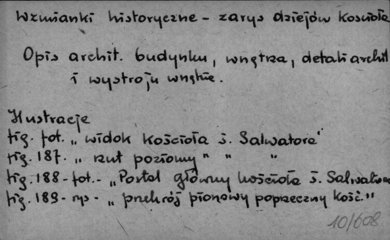 Wzmianki historyczne - zarys dziejów Kościoła
Opis archit. budynku, wnętrza, detali archit
i wystroju wnętrz.
Ilustracje
fig. fot. „widok Kościoła ś. Salwatora"
fig. 187. „rzut poziomy" " "
fig. 188 - fot. - „Portal główny kościoła ś. Salwatora
fig. 189 - rys - „przekrój pionowy poprzeczny kość."
10/608